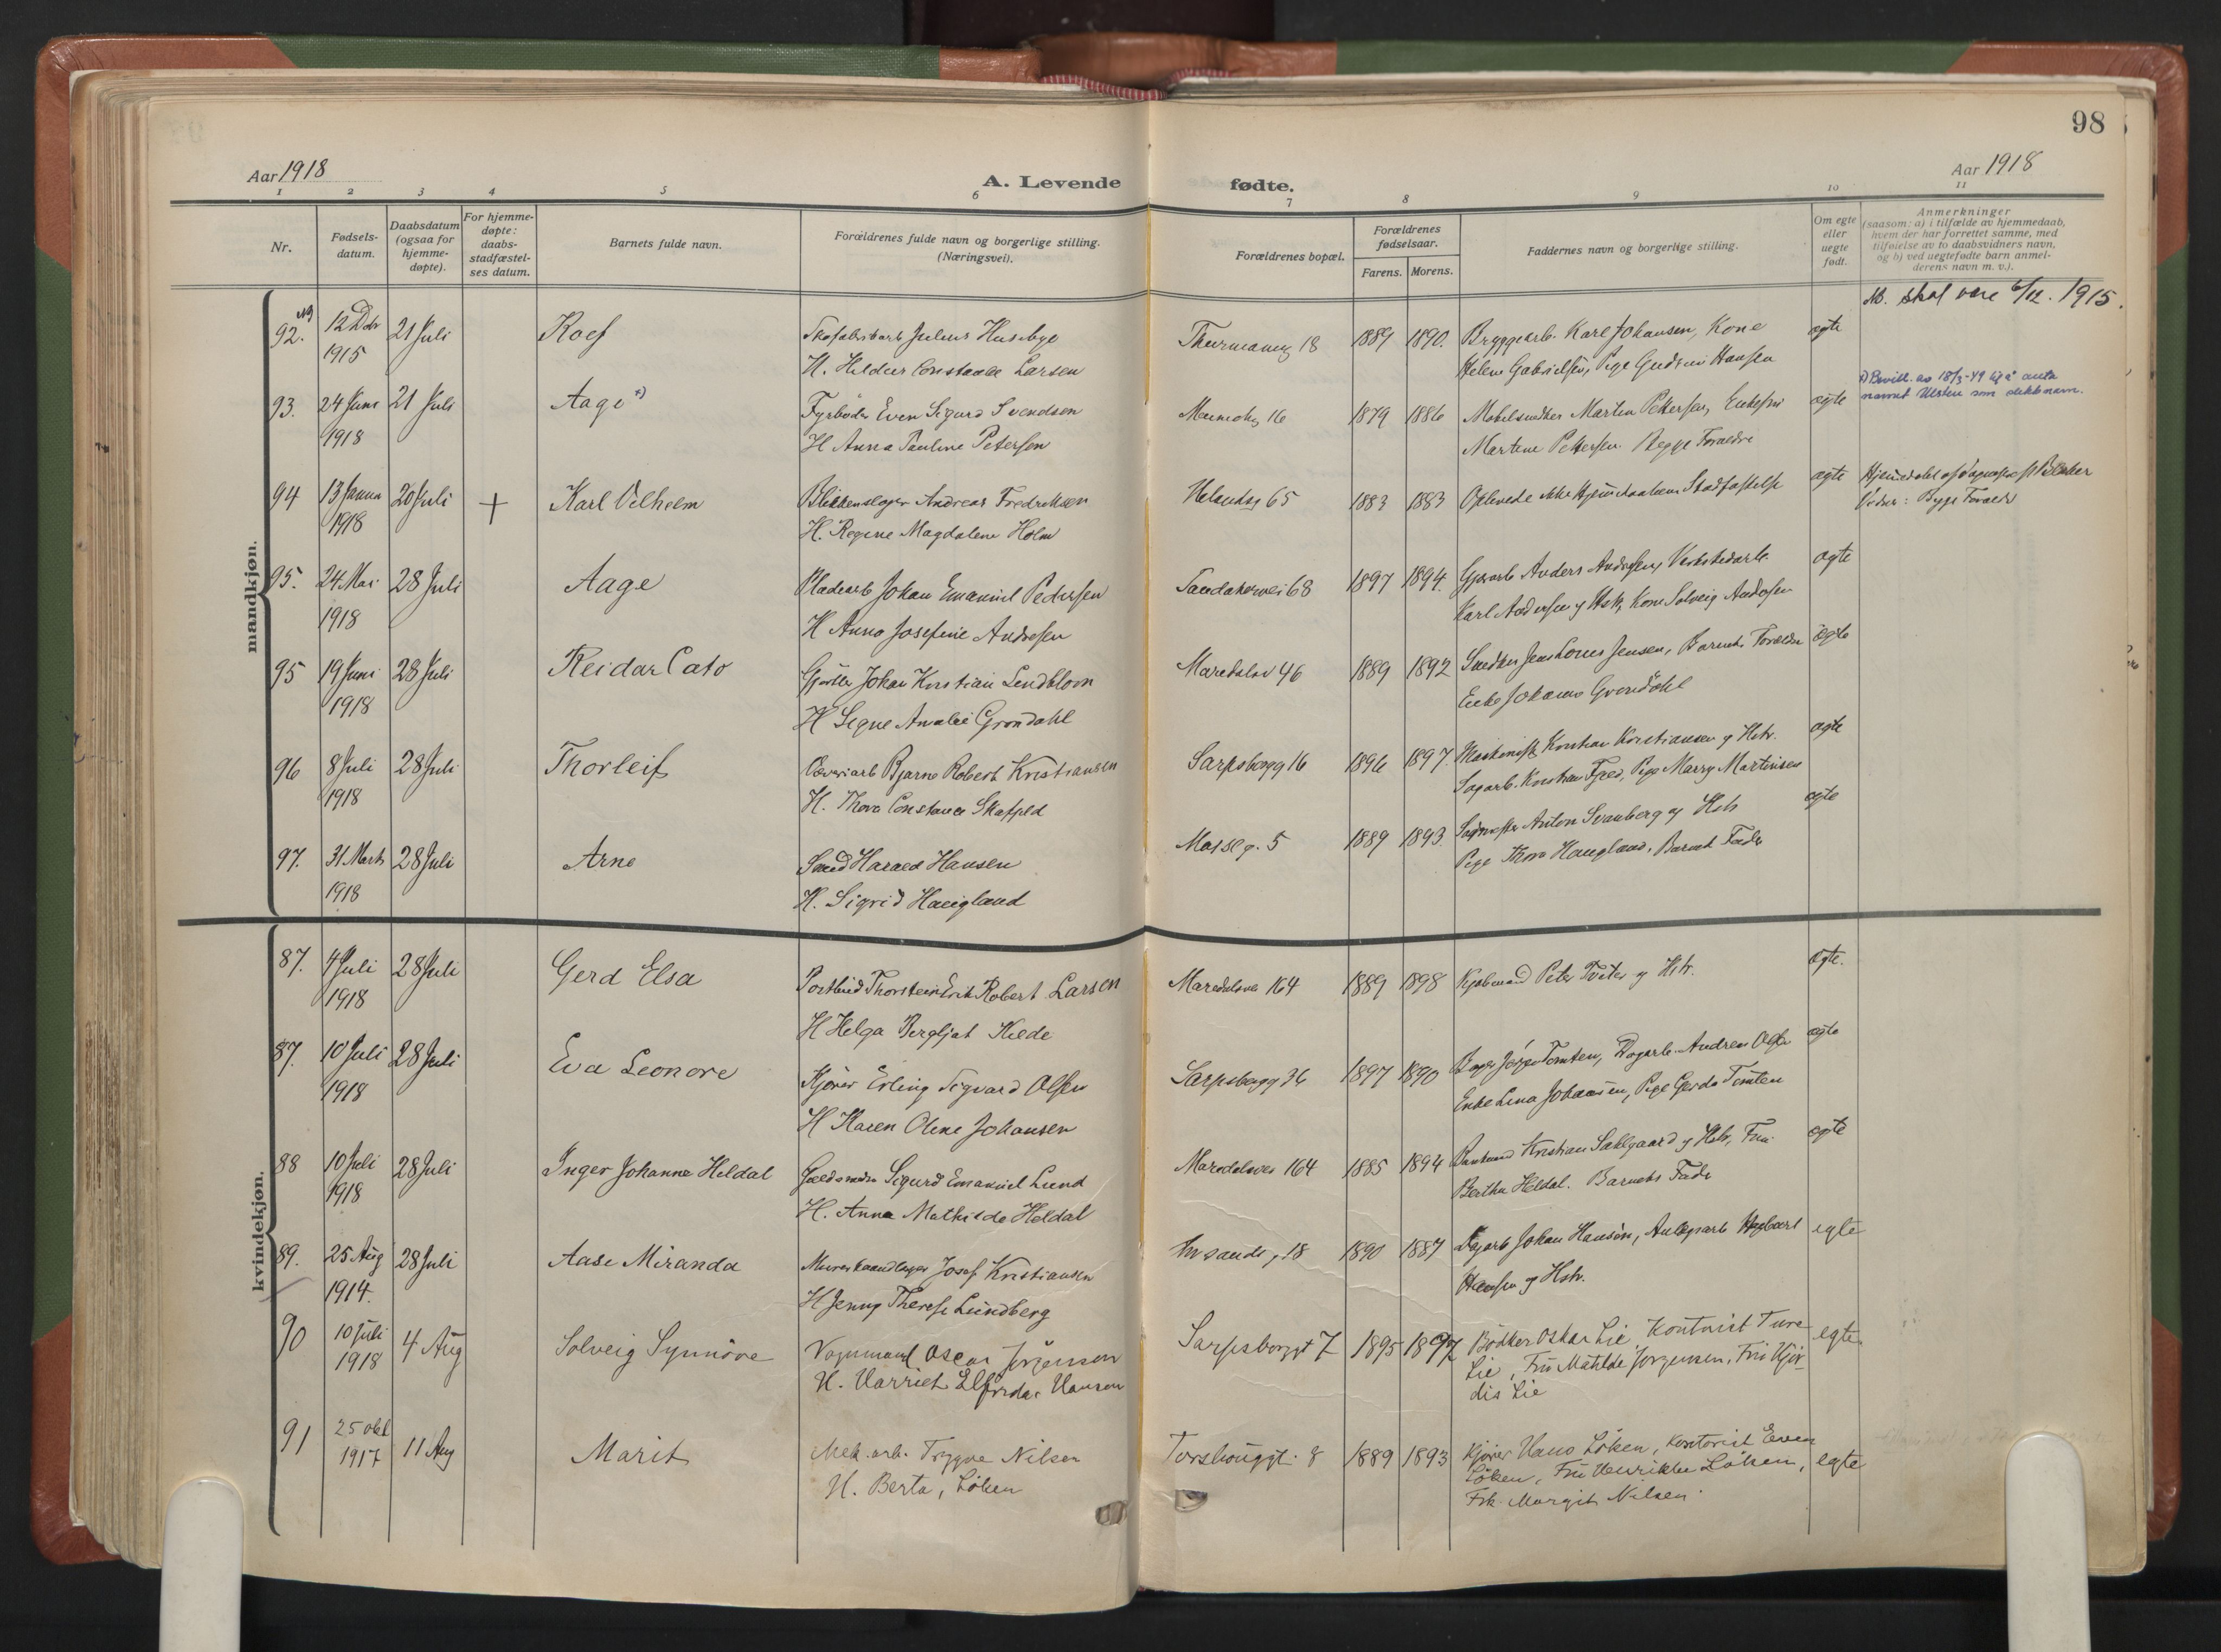 98
Aar 1918
A. Levende fødte.
Aar 1918
1 2 3 4 5 6 7 8 9 10 11
Nr.
Fødsels-
datum.
Daabsdatum
(ogsaa for
hjemme-
døpte).
For hjemme-
døpte:
daabs-
stadfæstel-
ses datum.
Barnets fulde navn.
Forældrenes fulde navn og borgerlige stilling.
(Næringsvei).
Forældrenes bopæl.
Forældrenes
fødselsaar.
Farens. Morens.
Faddernes navn og borgerlige stilling.
Om egte
eller
uegte
født.
Anmerkninger
(saasom: a) i tilfælde av hjemmedaab,
hvem der har forrettet samme, med
tilføielse av to daabsvidners navn,
og b) ved uegtefødte barn anmel-
derens navn m. v.).
mandkjøn.
NB. skal være 6/12. 1915.
92. 12 Dbr 21 Juli Roef Julius Husebye 18 1889 1890. Bryggearb. Karl Johansen, Kone ægte
1915 H. Constance Larsen Helene Gabrielsen, Pige Gudrun Hansen
93. 24 Juni 21 Juli Aage x) Fyrbøder Even Sigurd Svendsen 16 1879 1886 Møbelsnedker Martin Pettersen, Enkefru ægte x) Bevill. av 18/3-49 til å anta
1918 H Anna Pauline Petersen Martine Pettersen. Begge Forældre navnet som slektsnavn.
94 13 Janua 20 Juli + Karl Vilhelm Blikkenslager Andreas Fredriksen 65 1883 1883 Oplevede ikke Hjemmedaabens Stadfæstelse ægte
1918 H. Regine Magdalene Holm Vidner: Begge Forældre
95. 24 Mai 28 Juli Aage Pladearb Johan Emanuel Pedersen Sandakervei 68 1897 1894. Anders Andersen, Verkstedarb. ægte
1918 H Anna Josefine Andresen Karl Andersen og Hstr, Kone Solveig Andersen
95 19 Juni 28 Juli Reidar Cato Gjørtler Johan Kristian Lindblom Maridalsv 46 1889 1892 Snedker Jens Louis Jensen, Barnets Forældre ægte
1918 H Signe Amalie Grøndahl Enke Johanne Grøndahl
96 8 Juli 28 Juli Thorleif Væveriarb Bjarne Robert Kristiansen Sarpsborgg 16 1896 1897. Maskinist Kristian Kristiansen og Hstr. ægte
1918 H. Thora Constance Skafjeld Kristian Fjeld, Pige Marry Martinsen
97. 31 Marts 28 Juli Arne Smed Harald Hansen Mosseg. 5 1889 1893. Anton Svanberg og Hstr ægte
1918 H. Sigrid Haugland Pige Thora Haugland, Barnets Fader
kvindekjøn.
87. 4 Juli 28 Juli Gerd Elsa Postbud Thorstein Erik Robert Larsen Maridalsvei 164 1889 1898 Kjøbmand Peter Tveter og Hstr. ægte.
1918 H Helga Bergljot Kilde
87. 10 Juli 28 Juli Eva Leonore Kjører Erling Sigvard Olsen Sarpsborgg 36 1897 1890 Jørgen Tomten, Dagarb. Andreas Olsen ægte
1918 H Karen Oline Johansen Enke Lina Johansen, Pige Gerda Tomten
88 10 Juli 28 Juli Inger Johanne Heldal Guldsmed Sigurd Emanuel Lund Maridalsvei 164 1885 1894 Kristian Sahlgaard og Hstr, Fru ægte
1918 H. Anna Mathilde Heldal Bertha Heldal. Barnets Fader
89. 25 Aug 28 Juli Aase Miranda Murerhaandlager Josef Kristiansen 18 1890 1887 Dagarb Johan Hansen, Anlægsarb Hagbart egte
1914. H Jenny Therese Lundberg Hansen og Hstr.
90 10 Juli 4 Aug Solveig Synnöve Vognmand Oscar Jørgensen Sarpsborggt 7 1895 1897 Bödker Oskar Lie, Kontorist Ture egte
1918 H. Harriet Elfrida Hansen Lie, Fru Matilde Jørgensen, Fru Hjör-
dis Lie
91 25 Okt 11 Aug Marit Mek. arb. Trygve Nilsen Torshouggt. 8 1889 1893 Kjører Hans Löken, Kontorist Even
1917 H. Berta, Löken Löken, Fru Henrikke Löken, egte
Frk. Margit Nilsen.